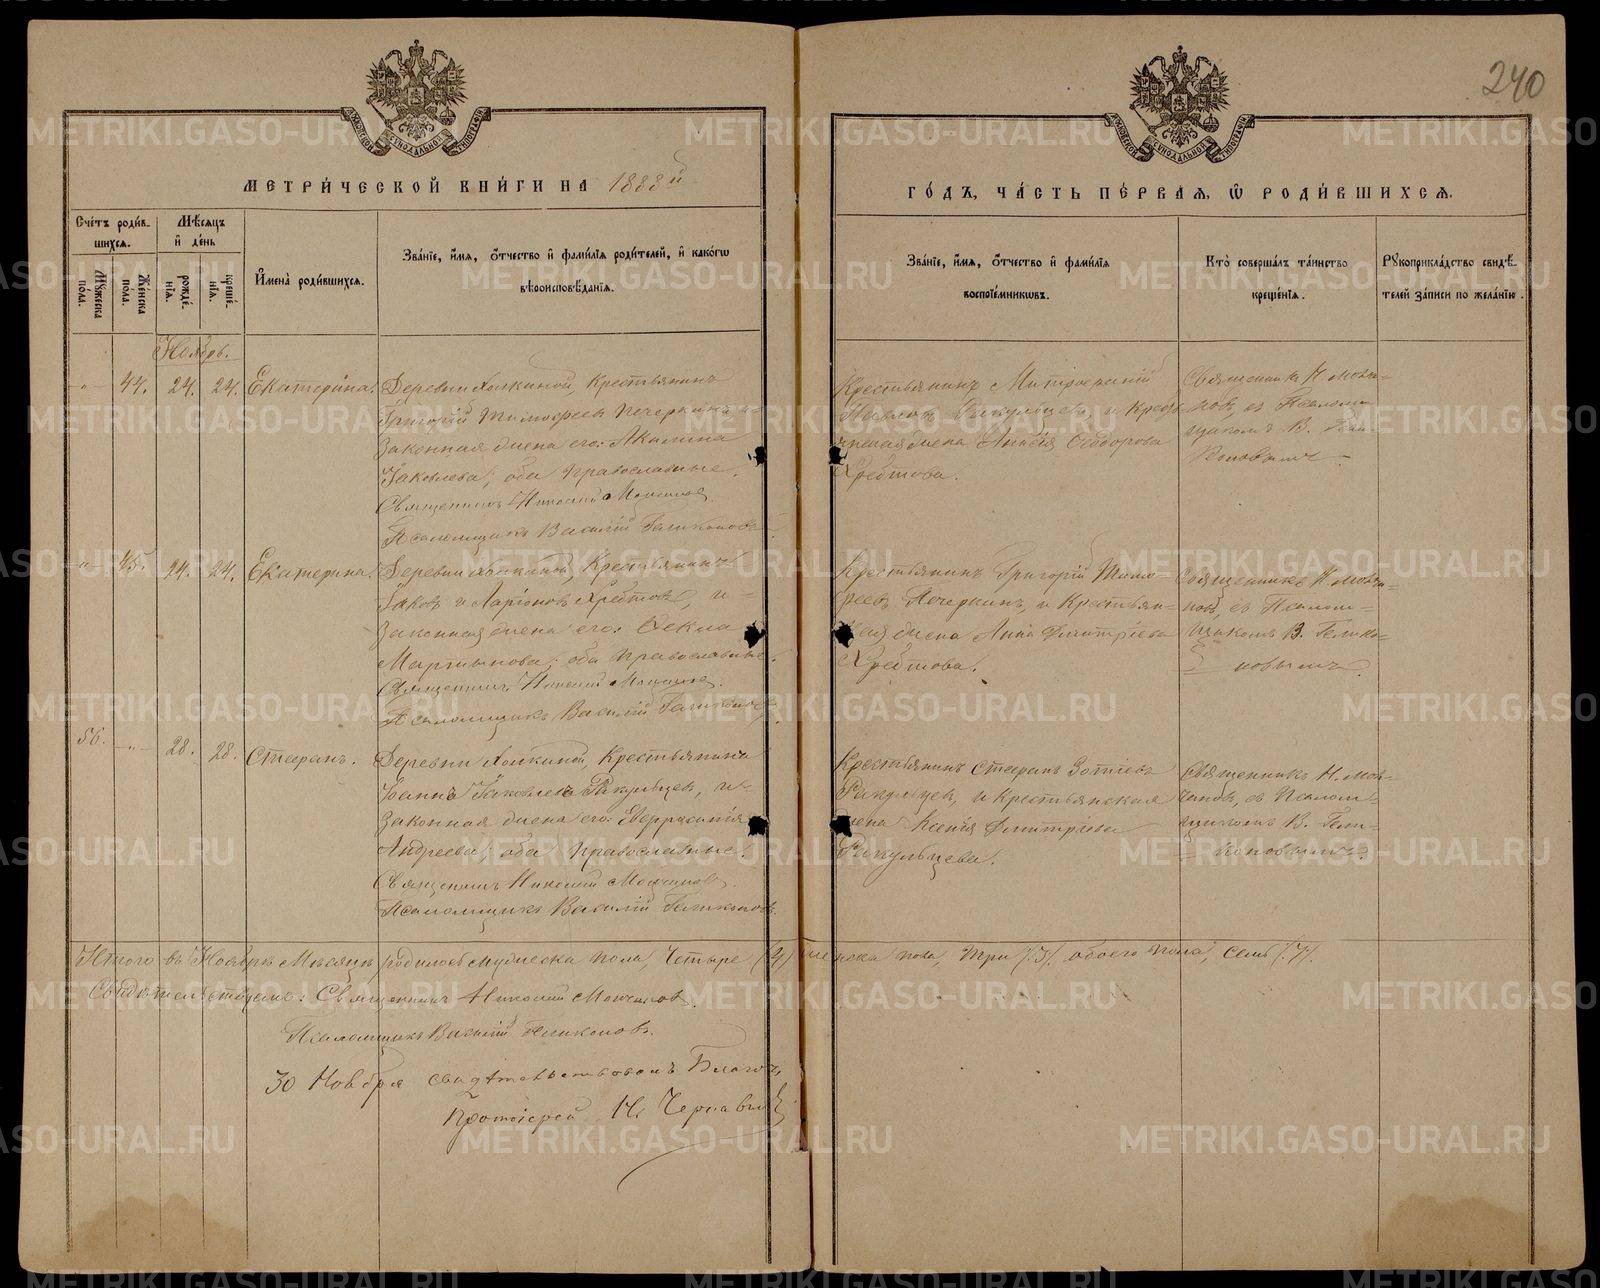 240
МЕТРИ́ЧЕСКОЙ КНИ́ГИ НА 1888й
ГО́ДЪ, ЧА́СТЬ ПЕ́РВАЯ, Ѡ РОДИ́ВШИХСЯ.
Сче́тъ роди́в-
шихся.
Мѣ́сяцъ
и де́нь
Му́жеска
по́ла.
Же́нска
по́ла.
рожде́-
нія.
креще́-
нія.
Имена̀ роди́вшихся.
Зва́ніе, и́мя, о́тчество и фами́лія роди́телей, и како́гѡ
вѣроисповѣ́данія.
Зва́ніе, и́мя, о́тчество и фами́лія
воспріе́мникѡвъ.
Кто̀ соверша́лъ та́инство
креще́нія.
Рукоприкла́дство свидѣ́-
телей за́писи по жела́нію.
Ноябрь.
-"- 44. 24. 24. Екатерина.
Деревни Холкиной, Крестьянинъ
Григорій Тимофеевъ Печеркинъ, и
законная жена его: Акилина
Іаковлева; оба православные.
Священникъ Николай
Псаломщикъ Василій Геликоновъ
Крестьянинъ Митрофаній
Павловъ Ракульцевъ, и Кресть-
янская жена Анисія Ѳеодорова
Хребтова.
Священникъ Н.
съ Псалом-
щикомъ В. Гели-
коновымъ
-"- 45. 24. 24. Екатерина.
Деревни Холкиной, Крестьянинъ
Іаковъ Ларіоновъ Хребтовъ, и
законная жена его: Ѳекла
Мартынова; оба православные.
Священникъ Николай
Псаломщикъ Василій Геликоновъ.
Крестьянинъ Григорій Тимо-
феевъ Печеркинъ, и Крестьян-
ская жена Анна Димитріева
Хребтова.
Священникъ Н.
съ Псалом-
щикомъ В. Гелико-
новымъ
56. -"- 28. 28. Стефанъ.
Деревни Холкиной, Крестьянинъ
Іоаннъ Іаковлевъ Ракульцевъ, и
законная жена его: Евфрасинія
Андреева; оба православные.
Священникъ Николай
Псаломщикъ Василій Геликоновъ
Крестьянинъ Стефанъ Зотіевъ
Ракульцевъ, и Крестьянская
жена Ксенія Димитріева
Ракульцева.
Священникъ Н.
съ Псалом-
щикомъ В. Гели-
коновымъ.
Итого въ Ноябрѣ Мѣсяцѣ родилось мужеска пола, Четыре (4) женска пола, три (3). обоего пола, семь (7).
Священникъ Николай
Псаломщикъ Василій Геликоновъ.
30 Ноября свидѣтельствовалъ Благоч.
Протоіерей
METRIKI.GASO-URAL.RU